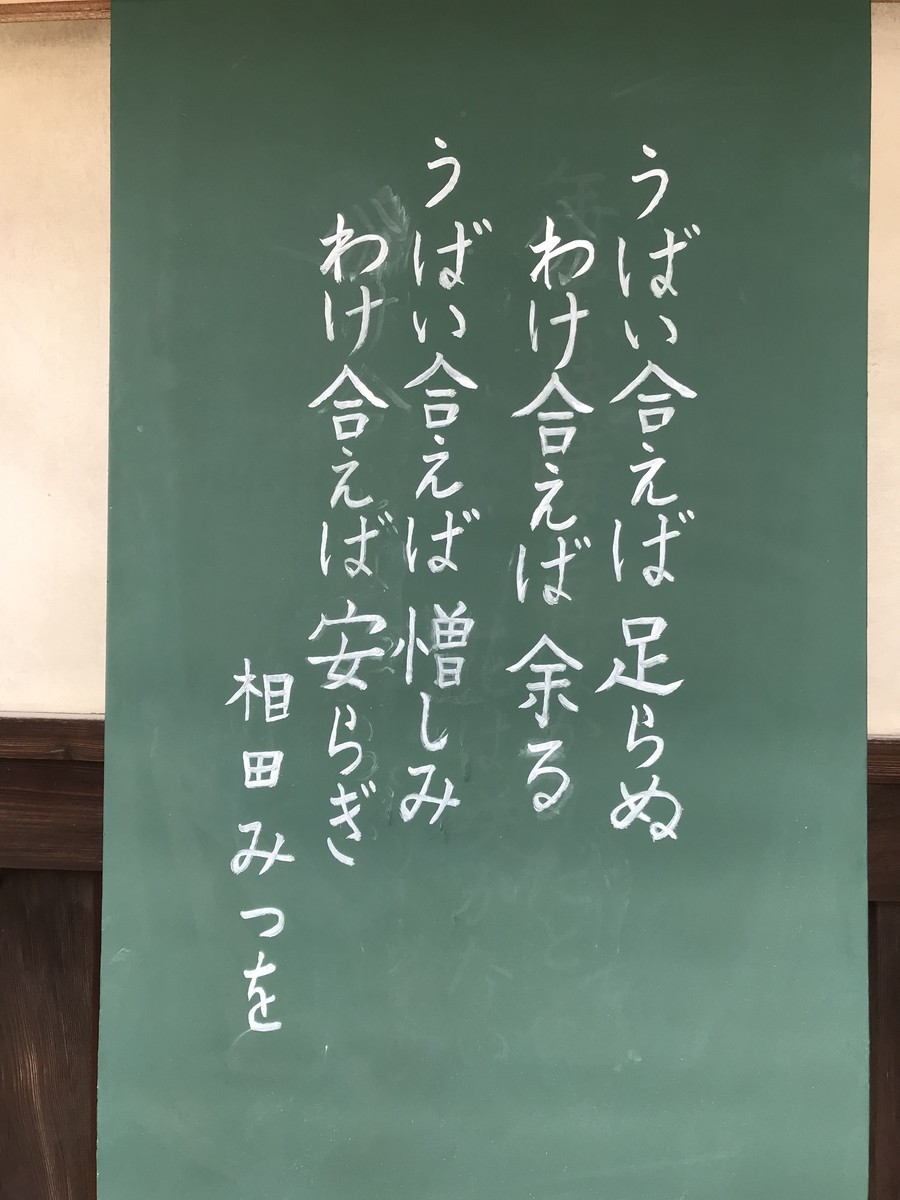 うばい合えば 足らぬ
わけ合えば 余る
うばい合えば 憎しみ
わけ合えば 安らぎ
相田みつを